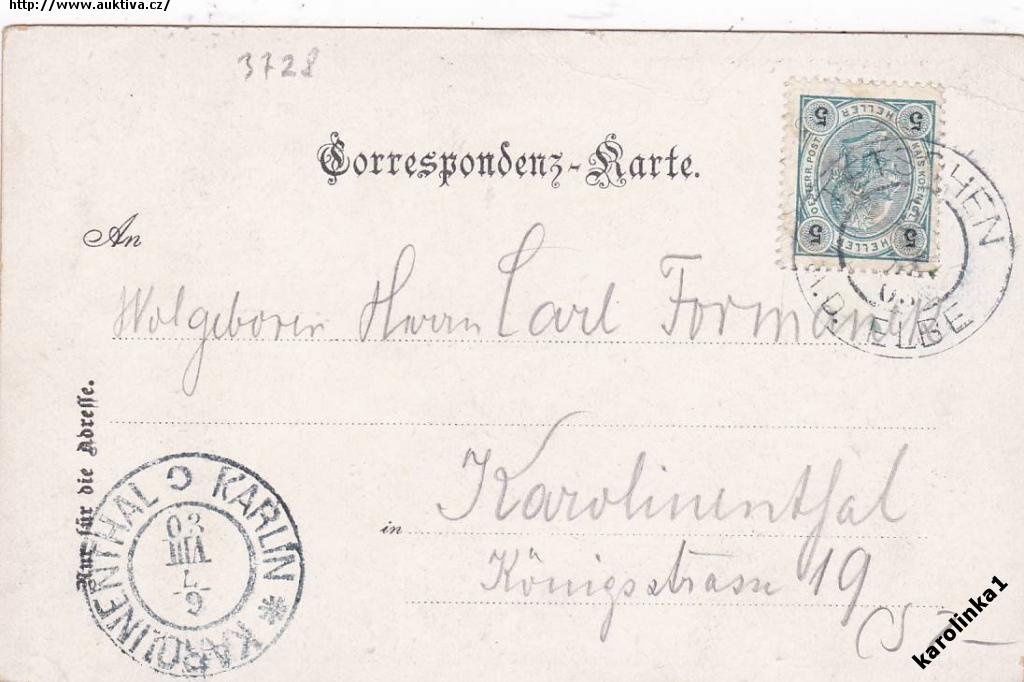 http://www.auktiva.cz/
3728
Correspondenz-Karte.
5 HELLER 5
KAIS. KOENIGL. OESTERR. POST
5 HELLER 5
CHEN
A.D. ELBE
03
An
Wolgeboren Herrn Carl
Nur für die Adresse.
in Karolinenthal
Königsstrasse 19
KARLIN * KAROLINENTHAL C
03
VIII
7
karolinka1